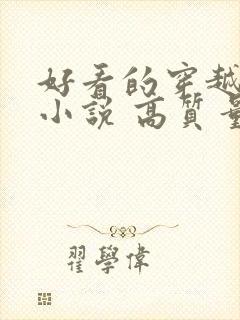 好看的穿越
小説 高質量
翟學偉